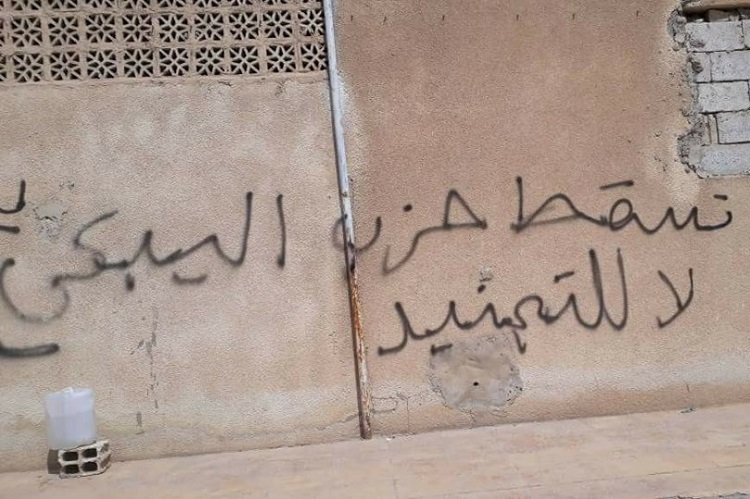 تسقط حزب البيكي
لا للتجنيد